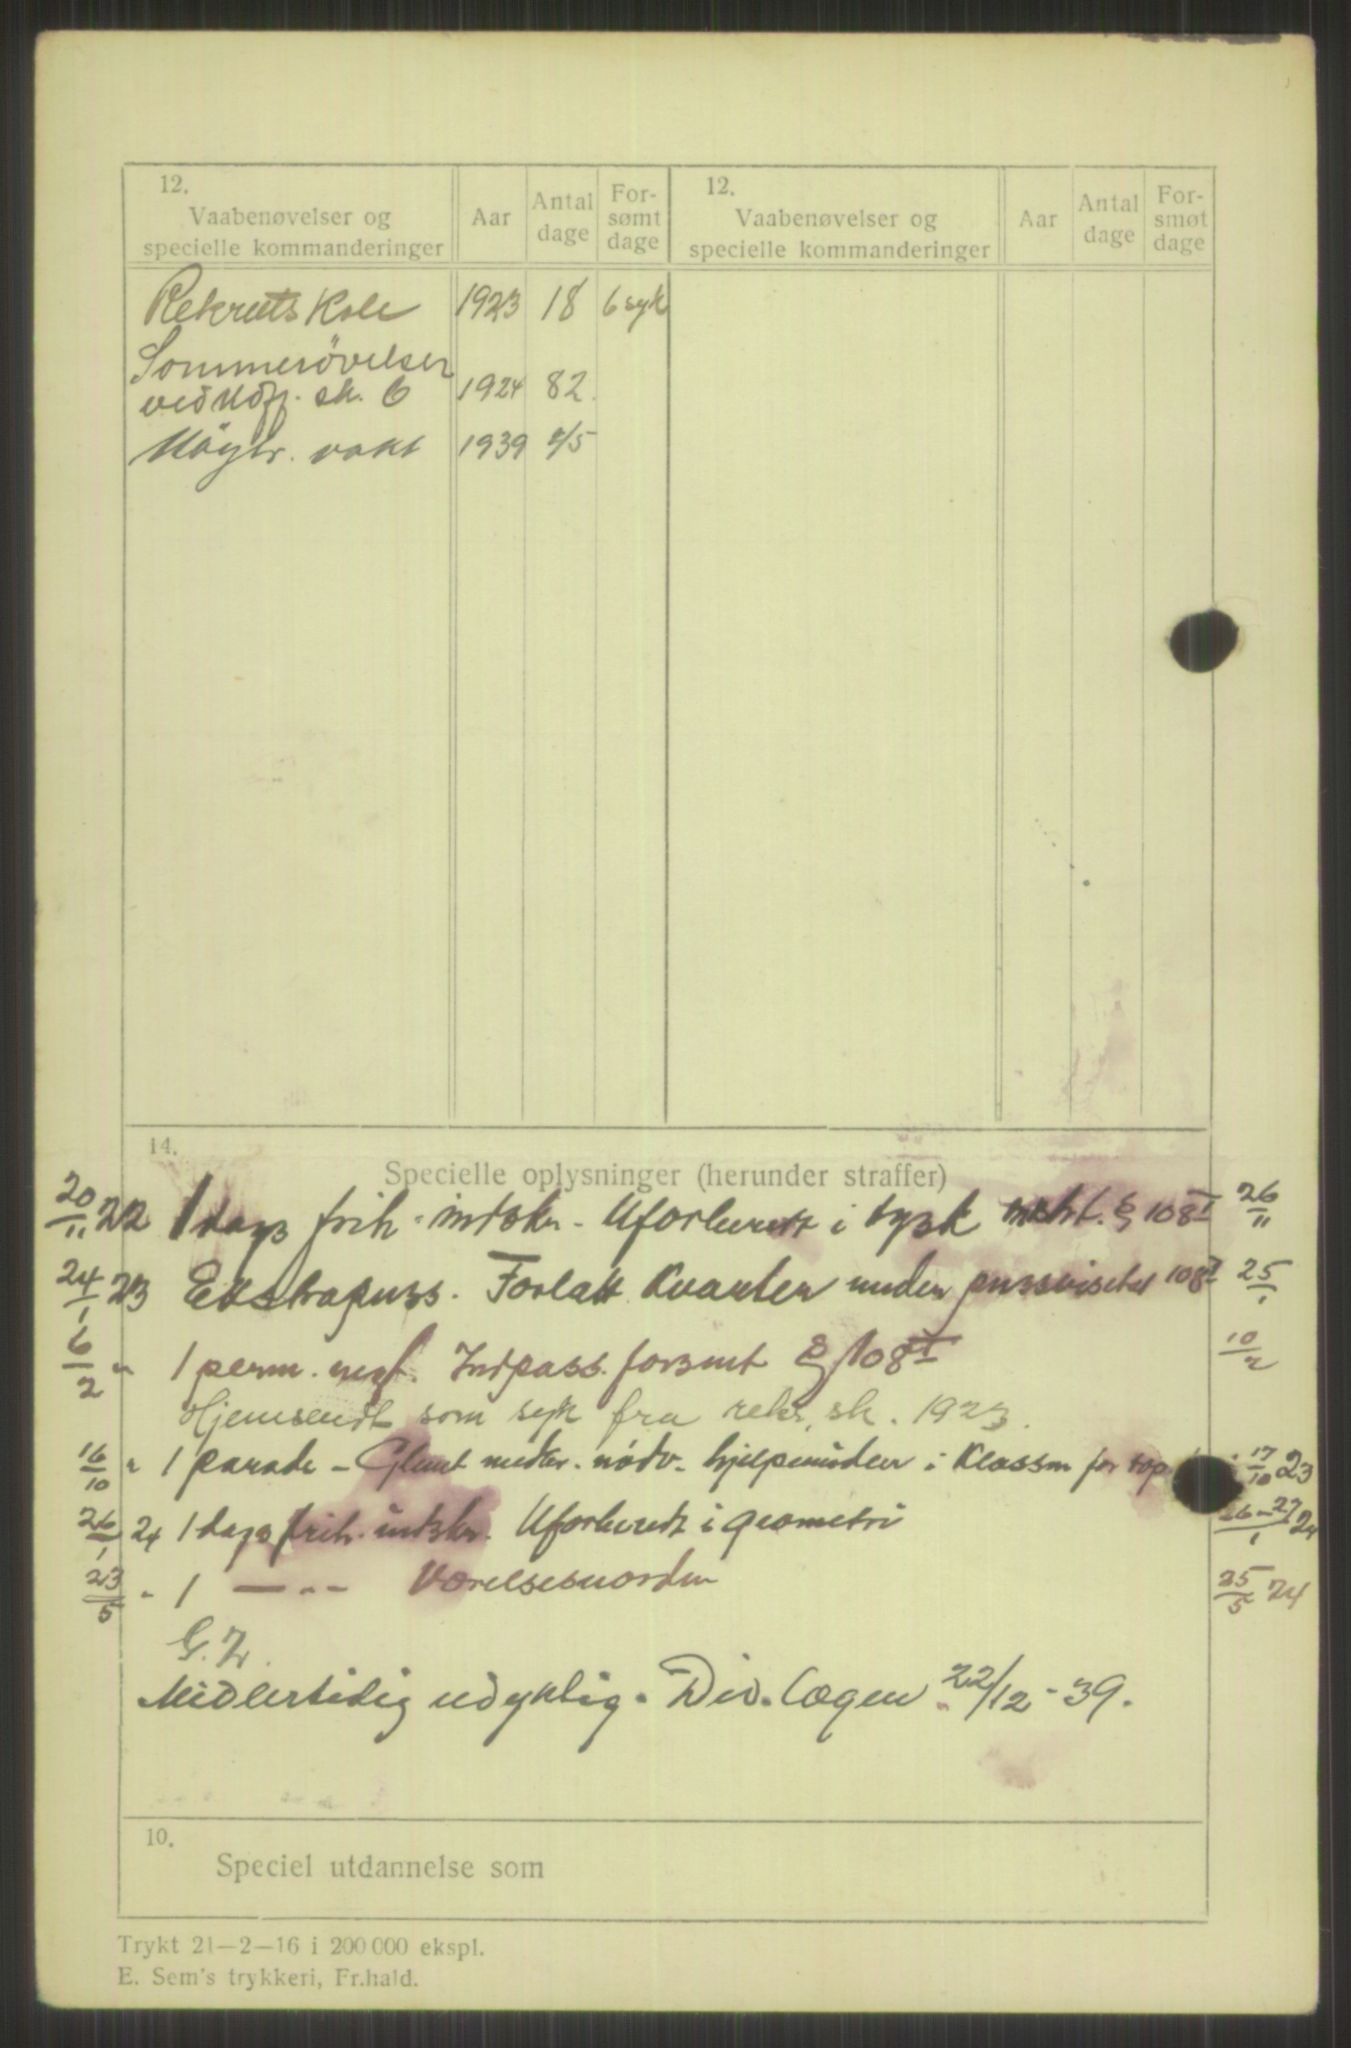 12.
Vaabenøvelser og
specielle kommanderinger
Aar
Antal
dage
For-
sømt
dage
12.
Vaabenøvelser og
specielle kommanderinger
Aar
Antal
dage
For-
smøt
dage
Rekrutskole 1923 18 6 syk
Sommerövelser
ved Uoff. sk. 6 1924 82.
Nöytr. vakt 1939 2/5
14.
Specielle oplysninger (herunder straffer)
20/11 22 1 dags frih. indskr. Uforberedt i tysk § 108 I 26/11
24/1 23 Ekstrapuss. Forlatt Kvarter under pussvisitas 108 I 25/1
6/2 " 1 perm. negt. Indpass. forsmt § 108 II 10/2
Hjemsendt som syk fra rekr. sk. 1923.
16/10 " 1 parade - Glemt nödv. hjelpemidler i Klassen for top 17/10 23
26/1 24 1 dags frih. indskr. Uforberedt i geometri 26-27/1 24
23/5 " 1 — " — Værelsesuorden 25/5 24
Midlertidig udyktig. Div. lægen 22/12-39.
10.
Speciel utdannelse som
Trykt 21—2—16 i 200 000 ekspl.
E. Sem's trykkeri, Fr.hald.